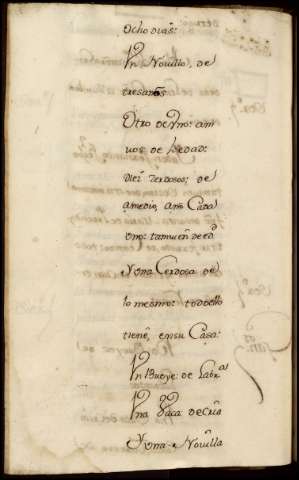 Ocho dias:
Vn Novillo, de
tres años
Otro de Vno: am
vos de hedad:
Diez zerdosos; de
amedio, año Cada
vno: tamuen de ed
Y vna Cerdosa de
lo mesmo: todo ello
tiene, en su Casa:
Vn Bueye: de Labr^a
Vna Baca: de Cria
Y vna Novilla